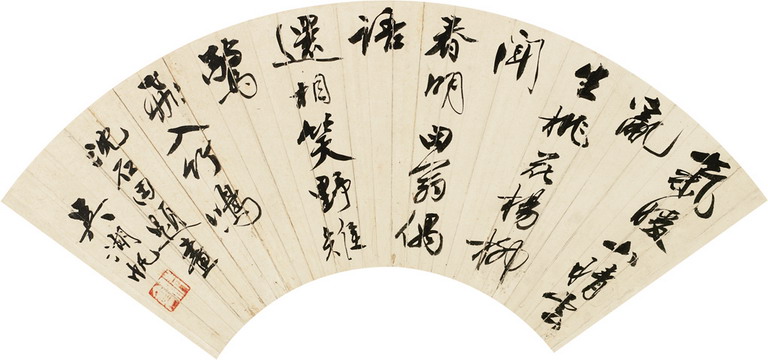 氣暖山晴雲
生桃花楊柳
聞
春明田翁偶
語
還相笑野雉
驚
飛入竹鳴
沈石田題畫
吳湖帆